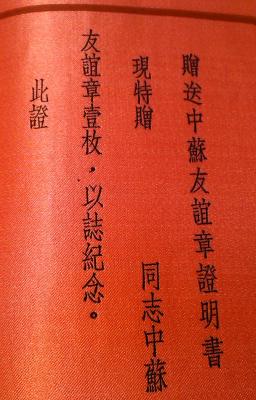 贈送中蘇友誼章證明書
現特贈
同志中蘇
友誼章壹枚，以誌紀念。
此證